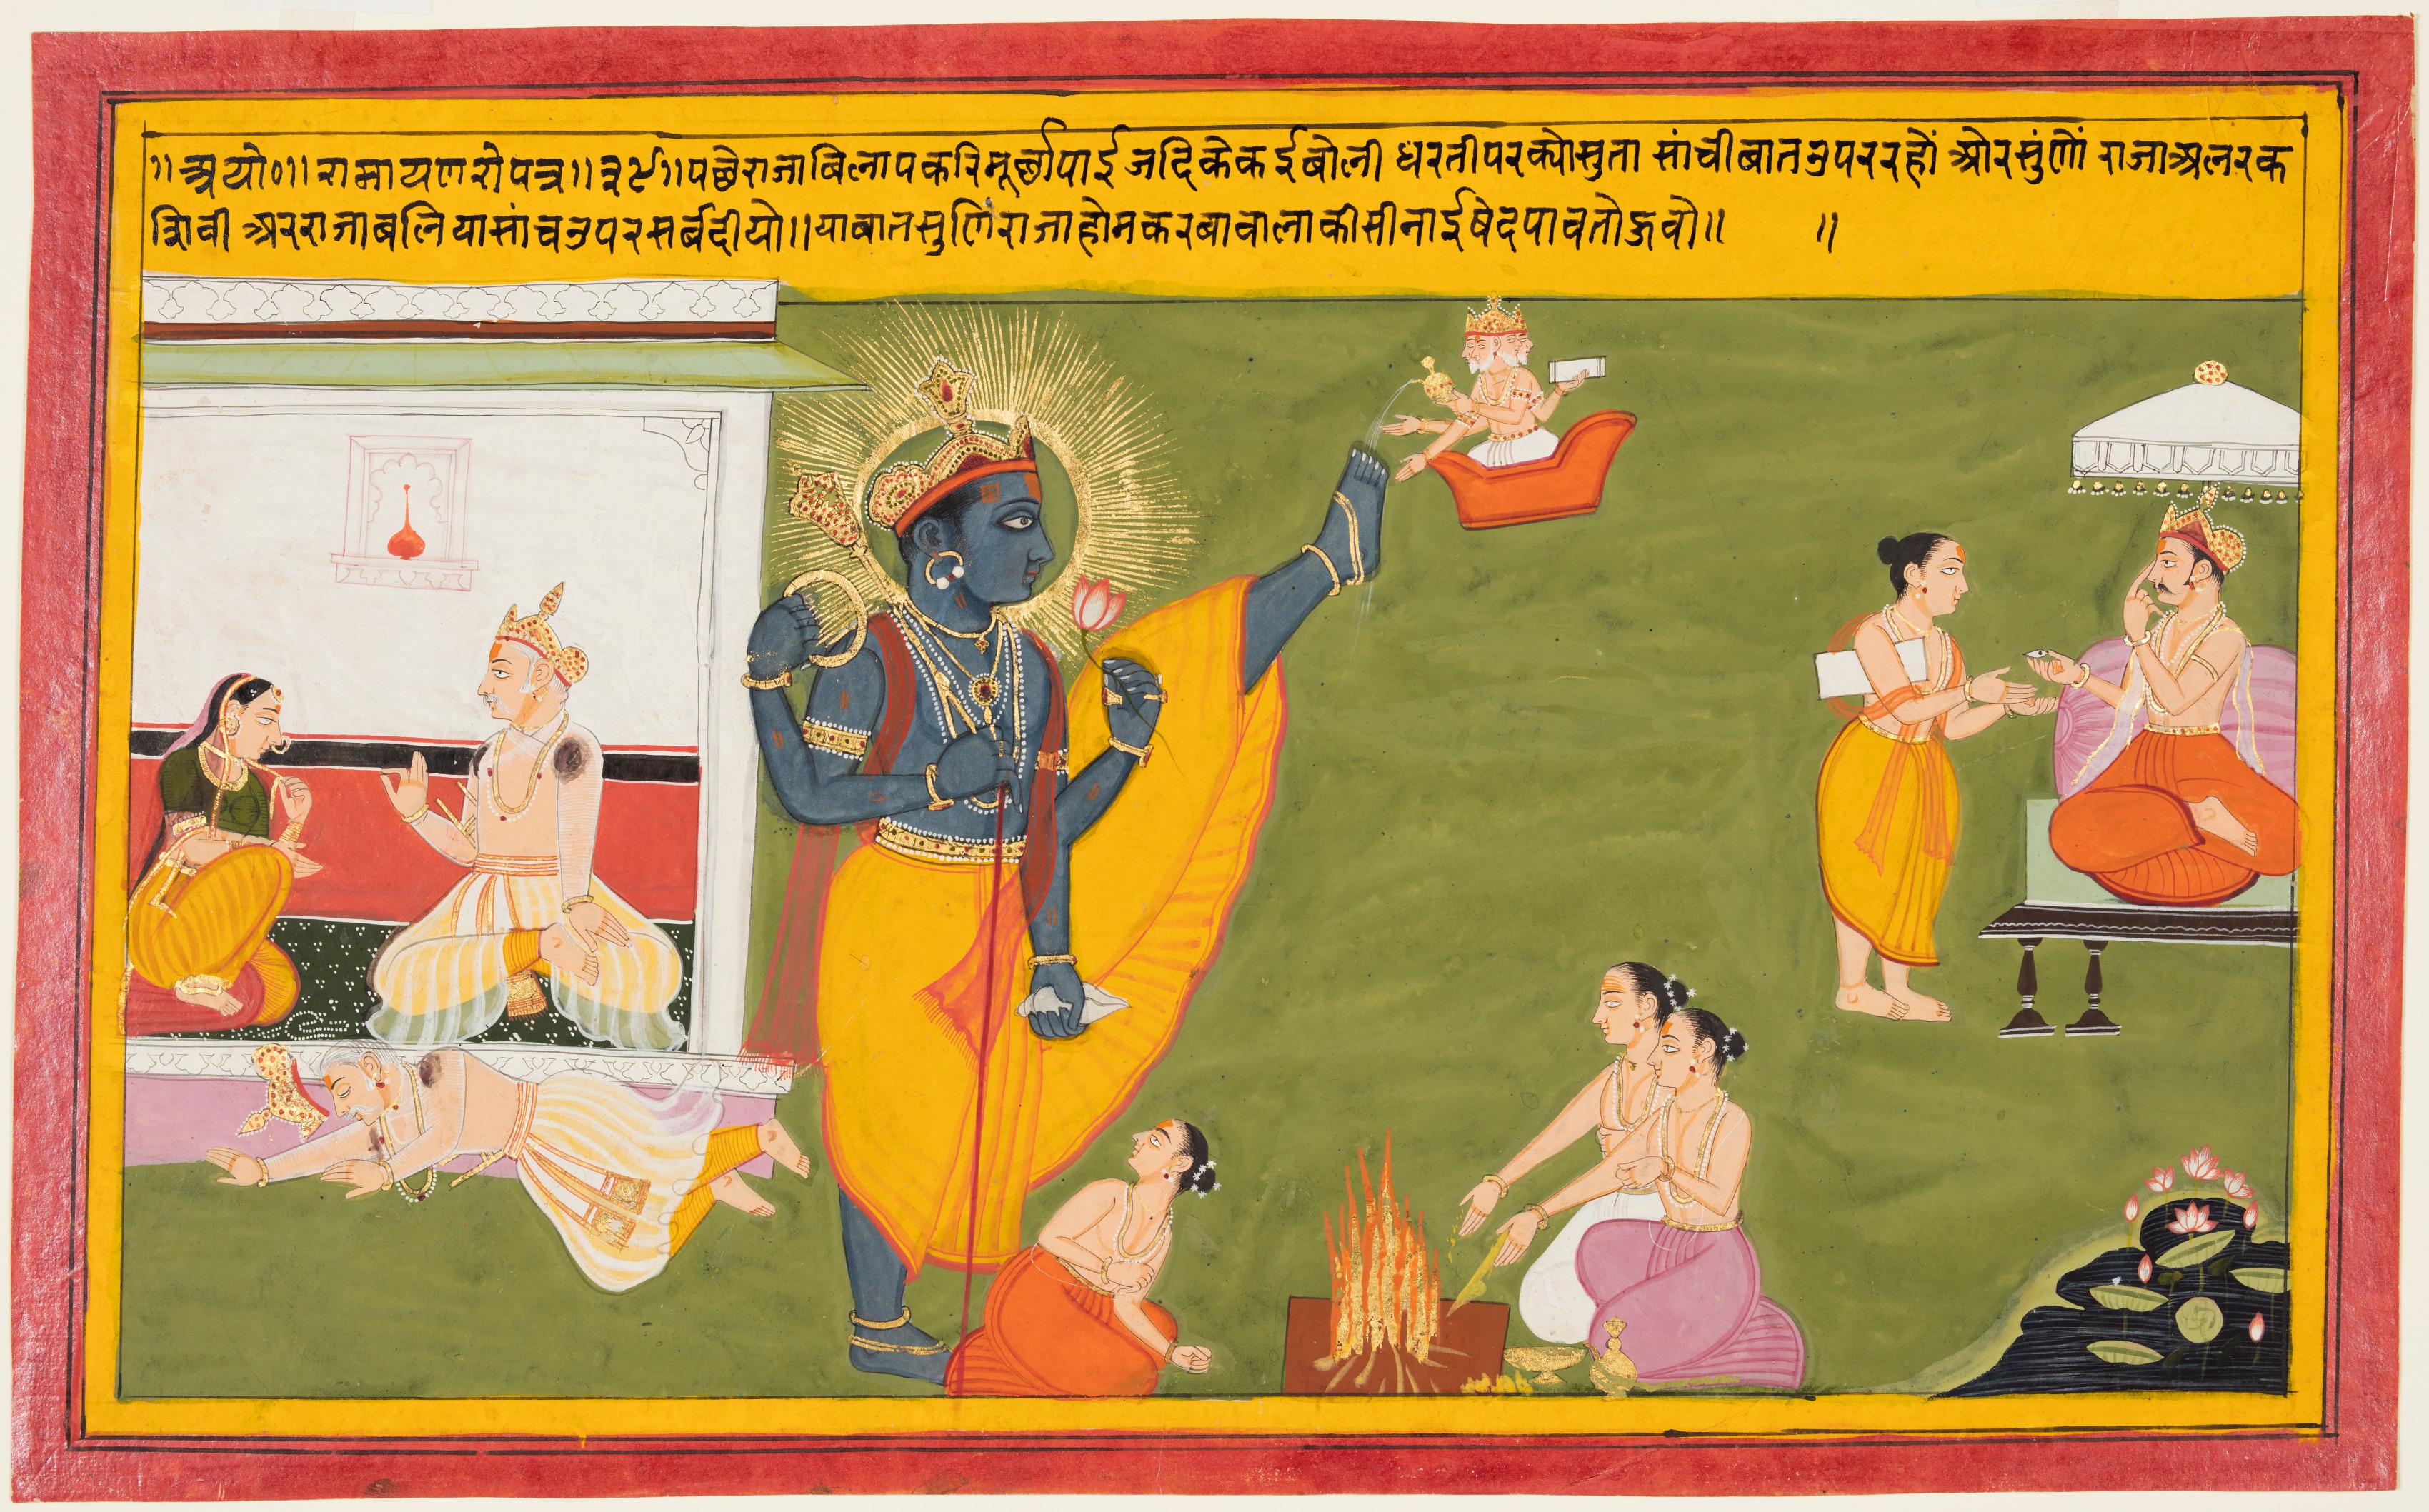 ॥अयो०॥रामायणरोपत्र॥३९॥पछेराजाबिलापकरिमूर्छापाईजदिकेकईबोली धरतीपरक्योसुता सांचीबातनुपररहों ओरसुंणों राजाअलरक
त्रिवी अरराजाबलियासांचनुपरसर्बदीयो॥याबातसुणिंराजाहोमकरबावालाकीसीनाईषेदपावतोऊवो॥ ॥